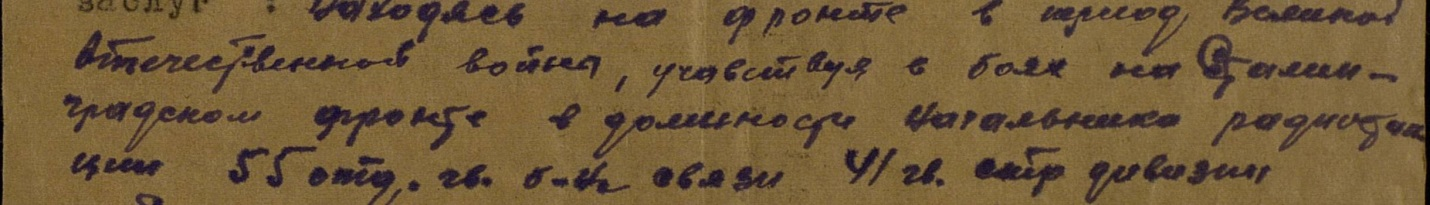 заслуг : Находясь на фронте в период Великой
Отечественной войны, учавствуя в боях на Сталин-
градском фронте в должности Начальника радиостан
ции 55 отд. гв. б-на связи 41 гв. стр дивизии